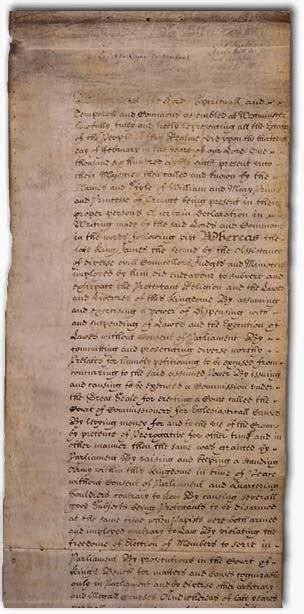 Lords Spirituall and
Temporall and Commons assembled at Westminster
lawfully fully and freely representing all the Estates
of the People of this Realme did upon the thirteenth
day of February in the yeare of our Lord One
thousand six hundred eighty eight present unto
their Majesties then called and known by the
Names and Stile of William and Mary Prince
and Princesse of Orange being present in their
proper persons A certain Declaration in
Writing made by the said Lords and Commons
in the words following viz Whereas the
late King James the Second by the Assistance
of diverse evill Councellors Judges and Ministers
imployed by him did endeavour to subvert and
extirpate the Protestant Religion and the Lawes
and Liberties of this Kingdome By assuming
and exercising a power of Dispensing with
and suspending of Lawes and the Execution of
Lawes without Consent of Parliament By
committing and prosecuting diverse worthy
Prelates for humbly petitioning to be excused from
concurring to the said assumed power By issuing
and causing to be executed a Commission under
the Great Seale for erecting a Court called the
Court of Commissioners for Ecclesiasticall Causes
By levying money for and to the use of the Crowne
by pretence of Prerogative for other time and in
other manner then the same was granted by
Parliament By raising and keeping a standing
Army within this Kingdome in time of Peace
without Consent of Parliament and Quartering
Souldiers contrary to Law By causing severall
good Subjects being Protestants to be disarmed
at the same time when Papists were both armed
and imployed contrary to Law By violating the
freedome of Election of Members to serve in
Parliament By prosecutions in the Court of
Kings Bench for matters and causes cognizable
only in Parliament and by diverse other arbitrary
and illegall Courses And whereas of late yeares